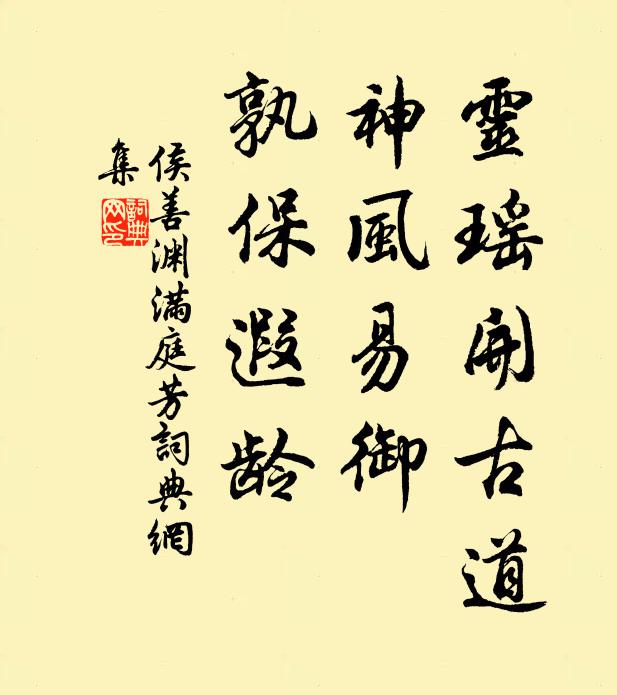 靈瑶開古道
神風易御
孰保遐龄
侯善渊滿庭芳詞典網
集
詞典网印